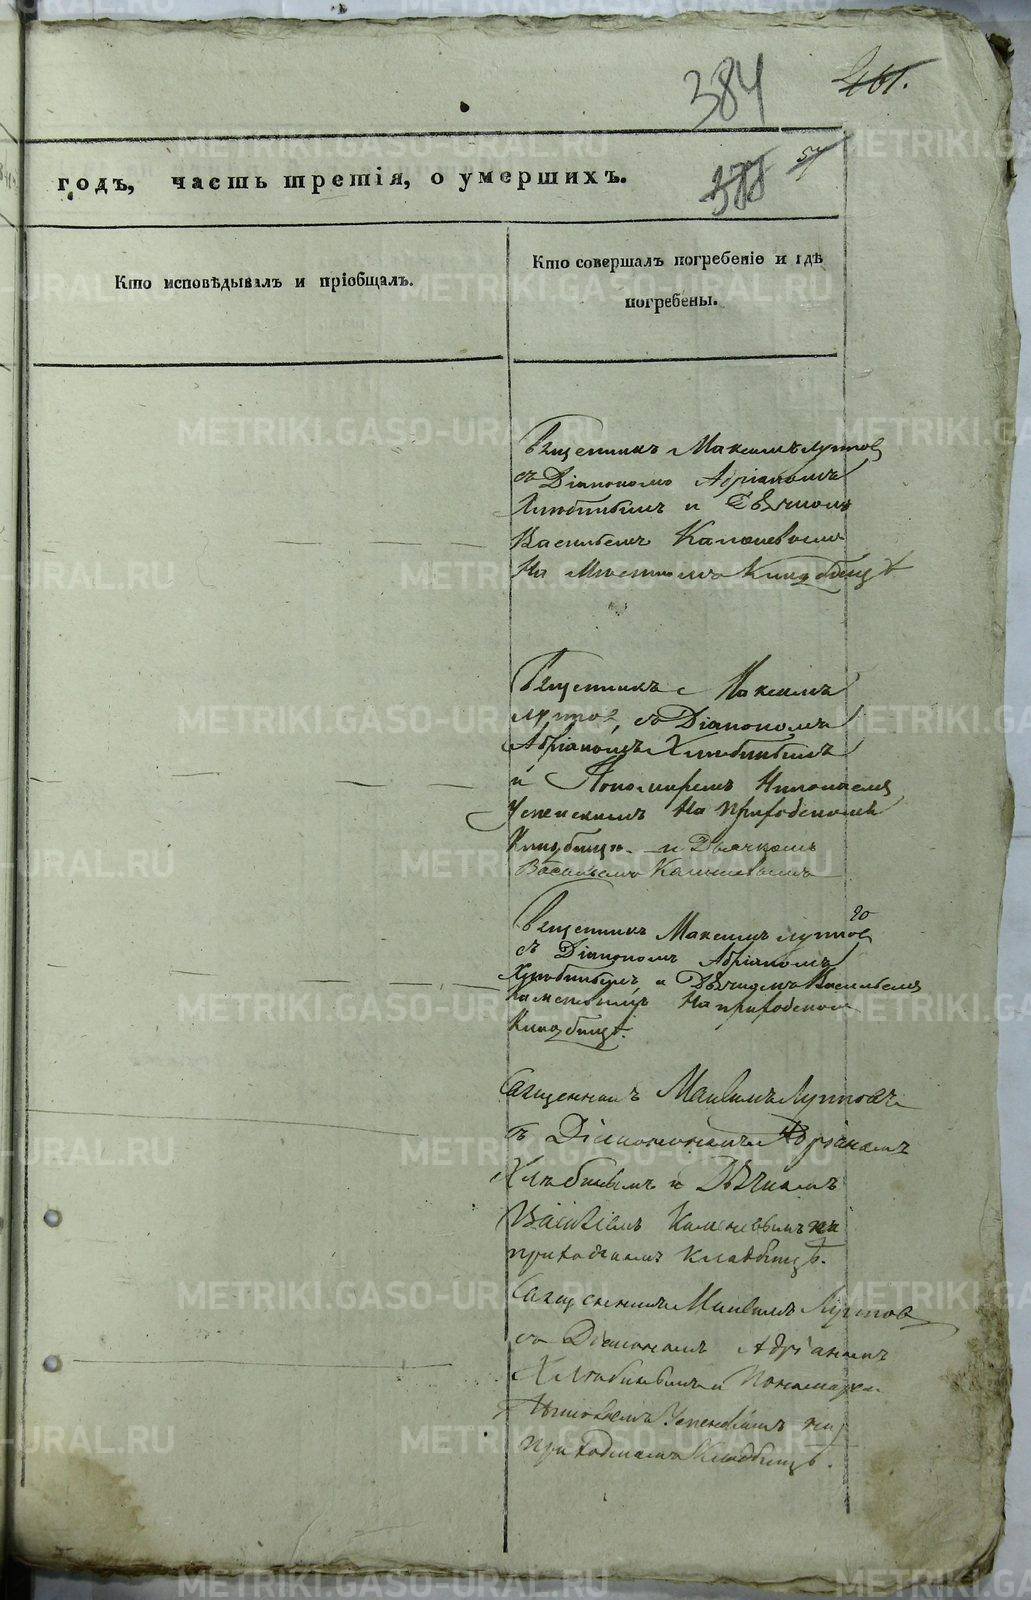 384
461.
годъ, часть третія, о умершихъ.
57
Кто исповѣдывалъ и пріобщалъ.
Кто совершалъ погребеніе и гдѣ
погребены.
Священникъ Максимъ Луттов
съ Діакономъ Адріаномъ
Хлюбинымъ и Дьячкомъ
Васильемъ
На Местномъ Кладбищѣ
Священникъ Максимъ
Луттов, съ Діакономъ
Адріаномъ Хлюбинымъ
и Пономаремъ Николаемъ
Успенскимъ На приходскомъ
Кладбищѣ и Дьячкомъ
Васильемъ
20
Священникъ Максимъ Луттов
съ Діакономъ Адріаномъ
Хлюбинымъ и Дьячкомъ Васильемъ
На приходском
Кладбищѣ.
Священникъ Максимъ Луттовъ
съ Діакономъ Адріаномъ
Хлюбинымъ и Дьячкомъ
Васильемъ на
приходскомъ кладбищѣ.
Священникъ Максимъ Луттов
съ Діакономъ Адріаномъ
Хлюбинымъ и Пономарем
Николаемъ Успенскимъ на
приходскомъ Кладбищѣ.
METRIKI.GASO-URAL.RU